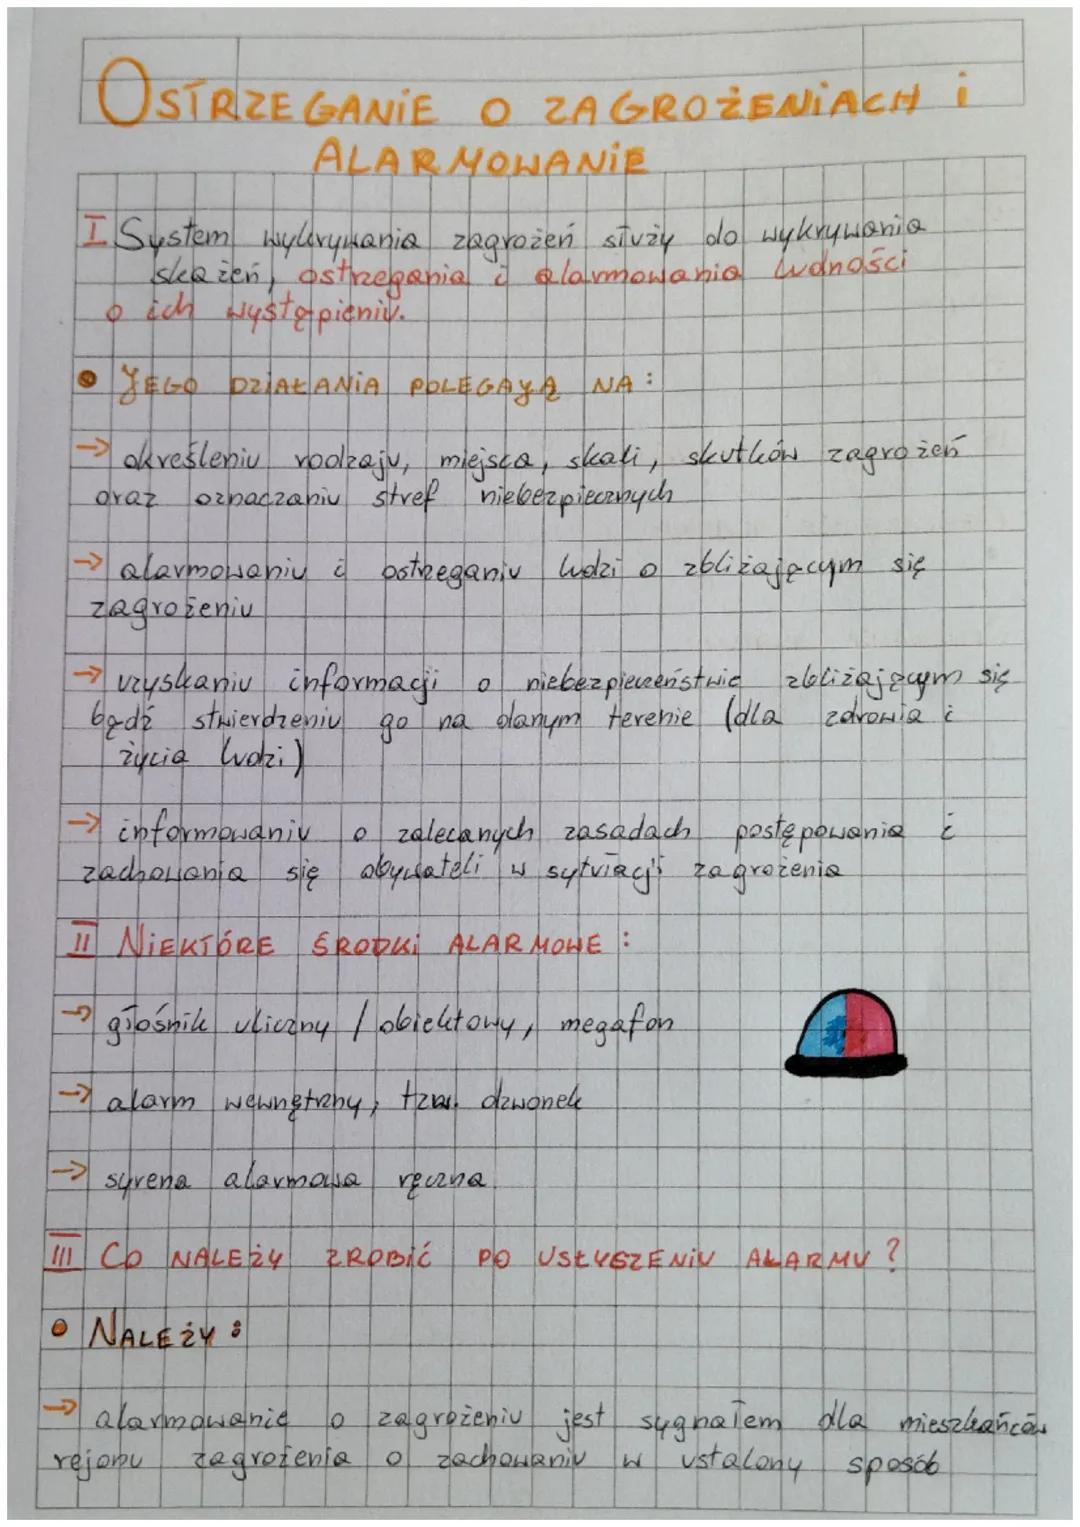 OSTRZEGANIE O ZAGROŻENIACH i
ALARMOWANIE
I System wykrywania zagrożeń służy do wykrywania
skażeń, ostrzegania i alarmowania ludności
o ich wystąpieniu.
• JEGO DZIAŁANIA POLEGAJĄ NA:
→ określeniu rodzaju, miejsca, skali, skutków zagrożeń
oraz oznaczaniu stref niebezpiecznych
→ alarmowaniu i ostrzeganiu ludzi o zbliżającym się
zagrożeniu
→ uzyskaniu informacji o niebezpieczeństwie zbliżającym się
bądź stwierdzeniu go na danym terenie (dla zdrowia i
życia ludzi)
→ informowaniu o zalecanych zasadach postępowania i
zachowania się obywateli w sytuacji zagrożenia
II NIEKTÓRE ŚRODKI ALARMOWE:
→ głośnik uliczny / obiektowy, megafon
→ alarm wewnętrzny, tzw. dzwonek
→ syrena alarmowa ręczna
III CO NALEŻY ZROBIĆ PO USŁYSZENIU ALARMU?
• NALEŻY:
→ alarmowanie o zagrożeniu jest sygnałem dla mieszkańców
rejonu zagrożenia o zachowaniu w ustalony sposób